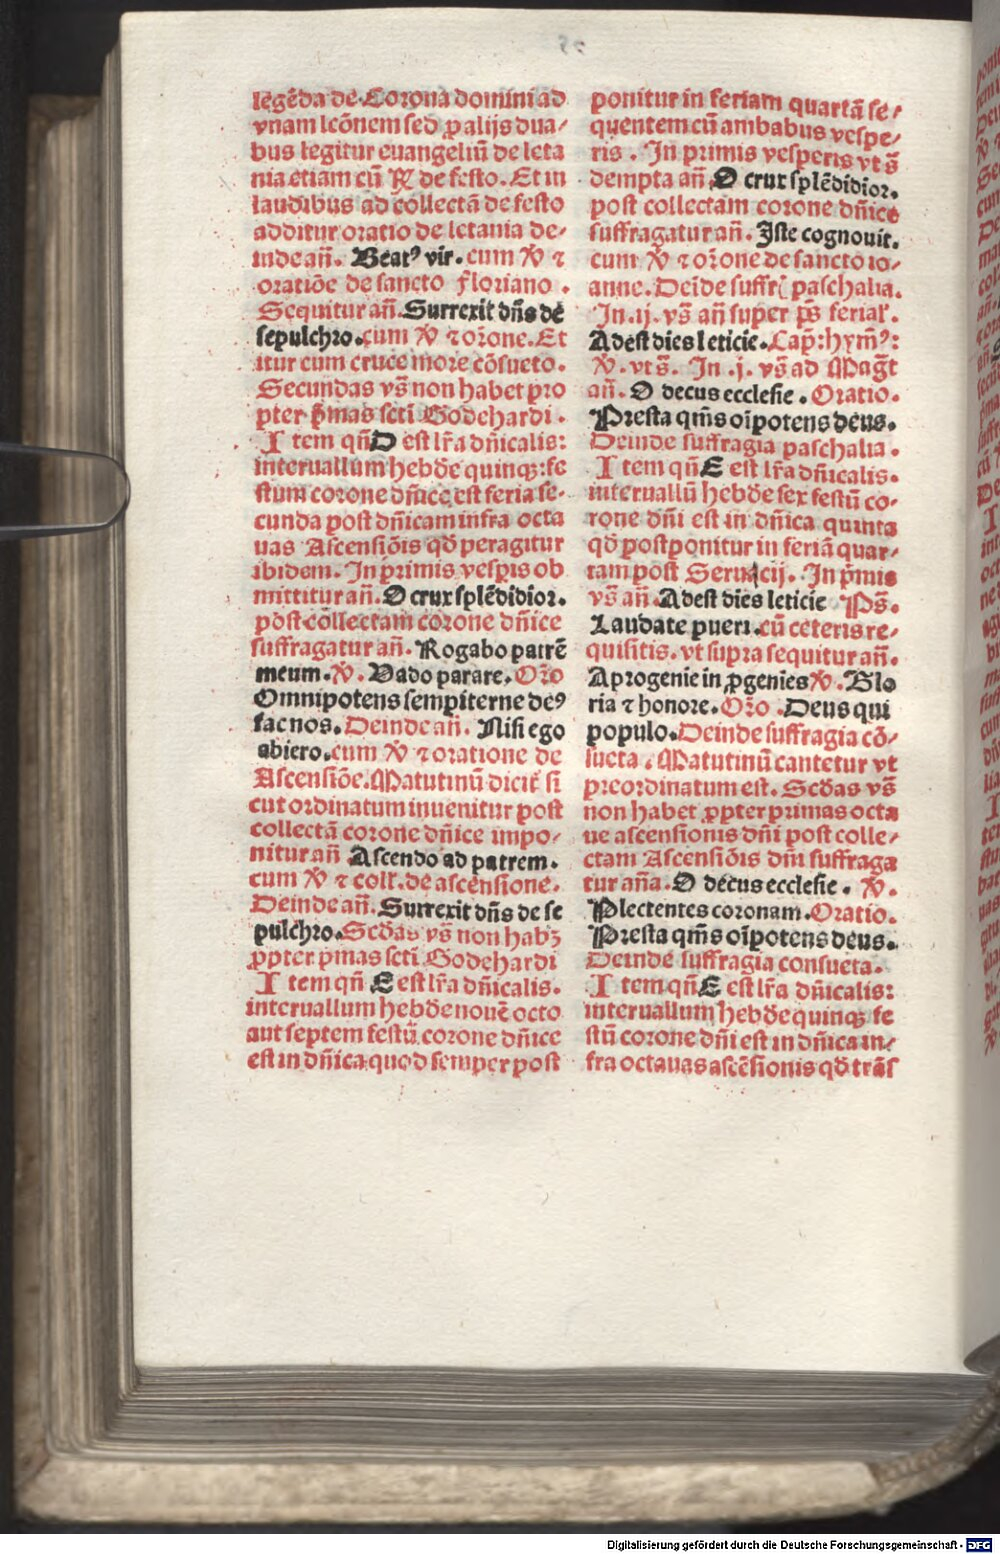 legēda de Corona domini ad
vnam lcōnem sed ꝓ alijs dua/
bus legitur euangeliū de leta
nia etiam cū ℟ de festo. Et in
laudibus ad collectā de festo
additur oratio de letania de-
inde añ. Beatꝰ vir. cum ℣ ⁊
oratiōe de sancto floriano.
Sequitur añ. Surrexit dñs de
sepulchro. cum ℣ ⁊ oīone. Et
itur cum cruce more cōsueto.
Secundas vs̄ non habet pro
pter p̄mas scti Godehardi.
Item qñ D est lr̄a dñicalis:
interuallum hebde quinqꝫ: fe
stum corone dñice est feria se-
cunda post dñicam infra octa
uas Ascensiōis qd̄ peragitur
ibidem. In primis vesꝑis ob
mittitur añ. O crux splēdidior.
post collectam corone dñice
suffragatur añ. Rogabo patrē
meum. ℣. Vado parare. Oro
Omnipotens sempiterne deꝰ
fac nos. Deinde añ. Nisi ego
abiero. cum ℣ ⁊ oratione de
Ascensiōe. Matutinū dicit̄ si
cut ordinatum inuenitur post
collectā corone dñice impo-
nitur añ Ascendo ad patrem.
cum ℣ ⁊ coll. de ascensione.
Deinde añ. Surrexit dñs de se
pulchro. Scd̄as vs̄ non habꝫ
ꝓpter p̄mas scti Godehardi
Item qñ E est lr̄a dñicalis.
interuallum hebde nouē octo
aut septem festū corone dñice
est in dñica quod semper post
ponitur in feriam quartā se/
quentem cū ambabus vespe/
ris. In primis vesperis vt s̄
dempta añ O crux splēdidior.
post collectam corone dñice
suffragatur añ. Iste cognouit.
cum ℣ ⁊ orōne de sancto io-
anne. Deīde suffrī paschalia.
In .ij. vs̄ añ super ps̄ ferial'.
Adest dies leticie. Cap: hymꝰ:
℣. vt s̄. In .j. vs̄ ad Magt̄
añ. O decus ecclesie. Oratio.
Presta qm̄s oīpotens deus.
Deinde suffragia paschalia.
Item qñ E est lr̄a dñicalis.
interuallū hebde sex festū co-
rone dñi est in dñica quinta
qd̄ postponitur in feriā quar/
tam post Seruacij. In p̄mis
vs̄ añ. Adest dies leticie Ps̄.
Laudate pueri. cū ceteris re/
quisitis. vt supra sequitur añ.
A progenie in ꝓgenies ℣. Glo
ria ⁊ honore. Oro. Deus qui
populo. Deinde suffragia cō/
sueta. Matutinū cantetur vt
preordinatum est. Scd̄as vs̄
non habet ꝓpter primas octa
ue ascensionis dñi post colle/
ctam Ascensiōis dñi suffraga
tur aña. O decus ecclesie. ℣.
Plectentes coronam. Oratio.
Presta qm̄s oīpotens deus.
Deinde suffragia consueta.
Item qñ E est lr̄a dñicalis:
interuallum hebde quinqꝫ fe
stū corone dñi est in dñica in/
fra octauas ascēsionis qd̄ trās
Digitalisierung gefördert durch die Deutsche Forschungsgemeinschaft - DFG